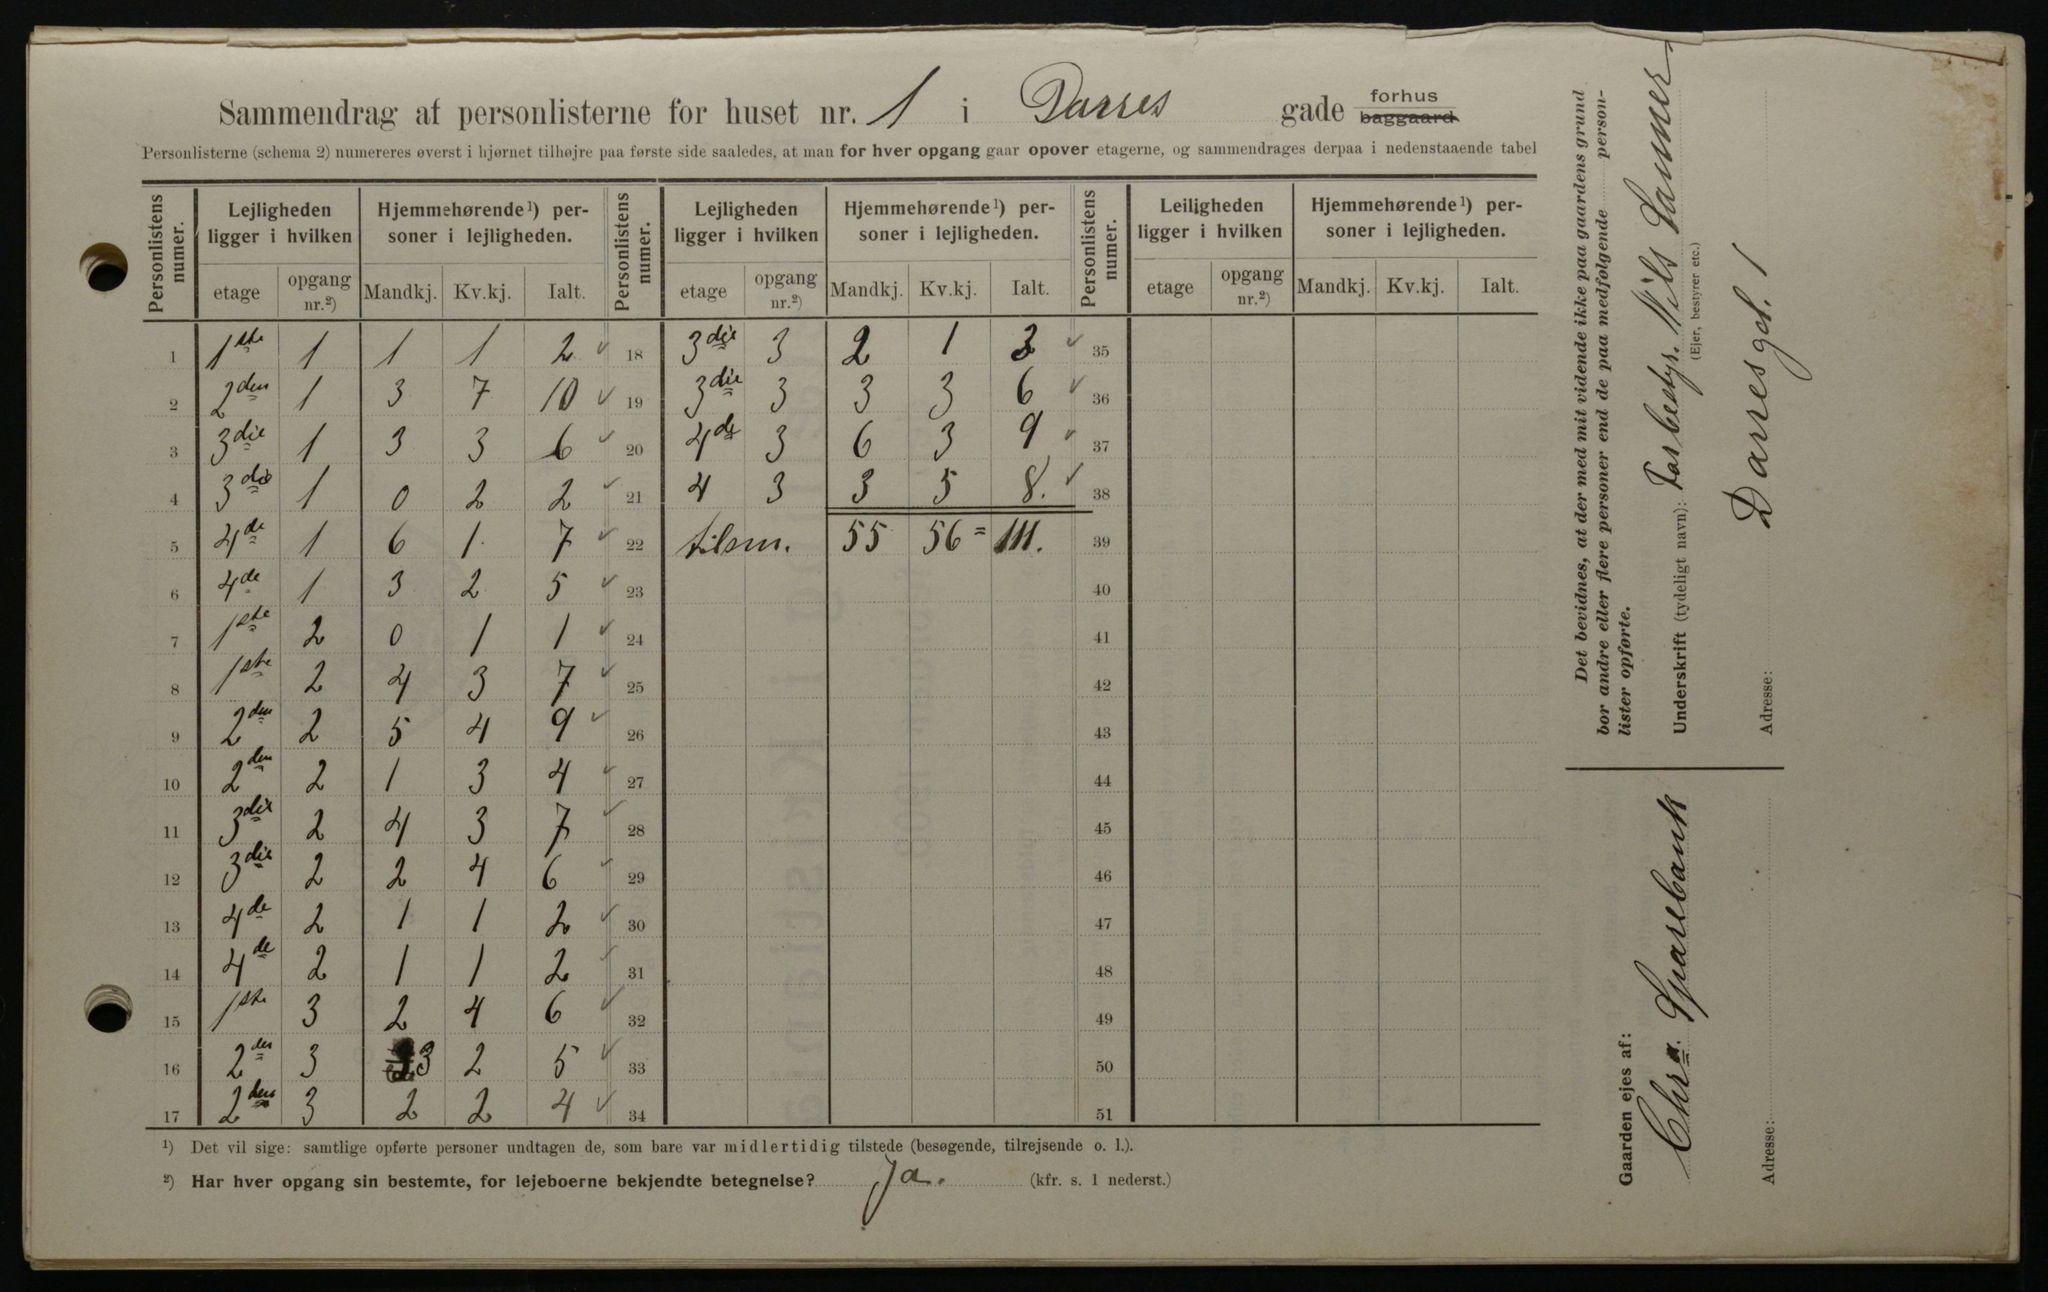 Sammendrag af personlisterne for huset nr. 1 i Darres gade forhus baggaard
Personlisterne (schema 2) numereres øverst i hjørnet tilhøjre paa første side saaledes, at man for hver opgang gaar opover etagerne, og sammendrages derpaa i nedenstaaende tabel
Personlistens numer. Lejligheden ligger i hvilken Hjemmehørende¹) personer i lejligheden. Personlistens numer. Lejligheden ligger i hvilken Hjemmehørende¹) personer i lejligheden. Personlistens numer. Leiligheden ligger i hvilken Hjemmehørende¹) personer i lejligheden.
etage opgang nr.²) Mandkj. Kv.kj. Ialt. etage opgang nr.²) Mandkj. Kv.kj. Ialt. etage opgang nr.²) Mandkj. Kv.kj. Ialt.
1 1ste 1 1 1 2 ✓ 18 3die 3 2 1 3 ✓ 35
2 2den 1 3 7 10 ✓ 19 3die 3 3 3 6 ✓ 36
3 3die 1 3 3 6 ✓ 20 4de 3 6 3 9 ✓ 37
4 3die 1 0 2 2 ✓ 21 4 3 3 5 8. ✓ 38
5 4de 1 6 1. 7 ✓ 22 tilsm. 55 56 = 111. 39
6 4de 1 3 2 5 ✓ 23 40
7 1ste 2 0 1 1 ✓ 24 41
8 1ste 2 4 3 7 ✓ 25 42
9 2den 2 5 4 9 ✓ 26 43
10 2den 2 1 3 4 ✓ 27 44
11 3die 2 4 3 7 ✓ 28 45
12 3die 2 2 4 6 ✓ 29 46
13 4de 2 1 1 2 ✓ 30 47
14 4de 2 1 1 2 ✓ 31 48
15 1ste 3 2 4 6 ✓ 32 49
16 2den 3 3 2 5 ✓ 33 50
17 2den 3 2 2 4 ✓ 34 51
¹) Det vil sige: samtlige opførte personer undtagen de, som bare var midlertidig tilstede (besøgende, tilrejsende o. l.).
²) Har hver opgang sin bestemte, for lejeboerne bekjendte betegnelse? Ja. (kfr. s. 1 nederst.)
Det bevidnes, at der med mit vidende ikke paa gaardens grund
bor andre eller flere personer end de paa medfølgende personlister opførte.
Underskrift (tydeligt navn): Forbestyr. Nils Sanner
(Ejer, bestyrer etc.)
Adresse: Darresgd. 1
Gaarden ejes af:
Chra. Sparebank
Adresse: